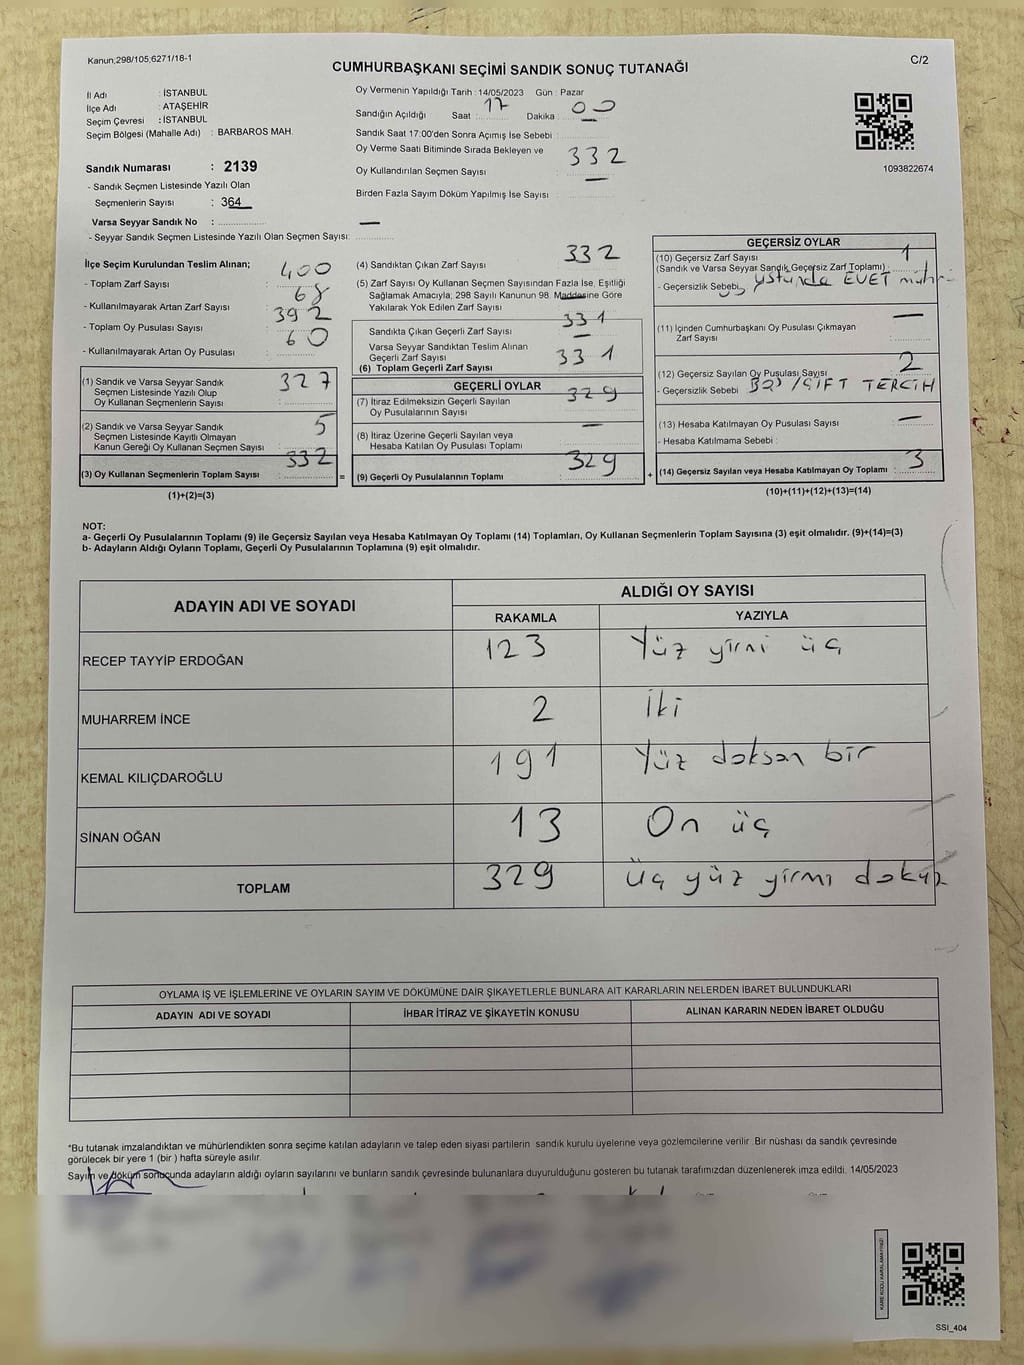 Kanun;298/105;6271/18-1
C/2
CUMHURBAŞKANI SEÇİMİ SANDIK SONUÇ TUTANAĞI
İl Adı : İSTANBUL
İlçe Adı : ATAŞEHİR
Seçim Çevresi : İSTANBUL
Seçim Bölgesi (Mahalle Adı) : BARBAROS MAH.
Sandık Numarası : 2139
- Sandık Seçmen Listesinde Yazılı Olan
Seçmenlerin Sayısı : 364
Varsa Seyyar Sandık No : —
- Seyyar Sandık Seçmen Listesinde Yazılı Olan Seçmen Sayısı:
Oy Vermenin Yapıldığı Tarih : 14/05/2023 Gün : Pazar
Sandığın Açıldığı Saat : 17 Dakika : 00
Sandık Saat 17:00'den Sonra Açımış İse Sebebi : —
Oy Verme Saati Bitiminde Sırada Bekleyen ve
Oy Kullandırılan Seçmen Sayısı : 332
Birden Fazla Sayım Döküm Yapılmış İse Sayısı : —
1093822674
İlçe Seçim Kurulundan Teslim Alınan;
- Toplam Zarf Sayısı : 400
- Kullanılmayarak Artan Zarf Sayısı : 68
- Toplam Oy Pusulası Sayısı : 392
- Kullanılmayarak Artan Oy Pusulası : 60
(1) Sandık ve Varsa Seyyar Sandık
Seçmen Listesinde Yazılı Olup
Oy Kullanan Seçmenlerin Sayısı : 327
(2) Sandık ve Varsa Seyyar Sandık
Seçmen Listesinde Kayıtlı Olmayan
Kanun Gereği Oy Kullanan Seçmen Sayısı : 5
(3) Oy Kullanan Seçmenlerin Toplam Sayısı : 332
(1)+(2)=(3)
(4) Sandıktan Çıkan Zarf Sayısı : 332
(5) Zarf Sayısı Oy Kullanan Seçmen Sayısından Fazla İse, Eşitliği
Sağlamak Amacıyla; 298 Sayılı Kanunun 98. Maddesine Göre
Yakılarak Yok Edilen Zarf Sayısı : —
Sandıkta Çıkan Geçerli Zarf Sayısı : 331
Varsa Seyyar Sandıktan Teslim Alınan
Geçerli Zarf Sayısı : —
(6) Toplam Geçerli Zarf Sayısı : 331
GEÇERLİ OYLAR
(7) İtiraz Edilmeksizin Geçerli Sayılan
Oy Pusulalarının Sayısı : 329
(8) İtiraz Üzerine Geçerli Sayılan veya
Hesaba Katılan Oy Pusulası Toplamı : —
= (9) Geçerli Oy Pusulalarının Toplamı : 329
GEÇERSİZ OYLAR
(10) Geçersiz Zarf Sayısı
(Sandık ve Varsa Seyyar Sandık Geçersiz Zarf Toplamı) : 1
- Geçersizlik Sebebi : üstünde EVET
(11) İçinden Cumhurbaşkanı Oy Pusulası Çıkmayan
Zarf Sayısı : —
(12) Geçersiz Sayılan Oy Pusulası Sayısı : 2
- Geçersizlik Sebebi : / ÇİFT TERCİH
(13) Hesaba Katılmayan Oy Pusulası Sayısı : —
- Hesaba Katılmama Sebebi :
+ (14) Geçersiz Sayılan veya Hesaba Katılmayan Oy Toplamı : 3
(10)+(11)+(12)+(13)=(14)
NOT:
a- Geçerli Oy Pusulalarının Toplamı (9) ile Geçersiz Sayılan veya Hesaba Katılmayan Oy Toplamı (14) Toplamları, Oy Kullanan Seçmenlerin Toplam Sayısına (3) eşit olmalıdır. (9)+(14)=(3)
b- Adayların Aldığı Oyların Toplamı, Geçerli Oy Pusulalarının Toplamına (9) eşit olmalıdır.
ADAYIN ADI VE SOYADI ALDIĞI OY SAYISI
RAKAMLA YAZIYLA
RECEP TAYYİP ERDOĞAN 123 Yüz yirmi üç
MUHARREM İNCE 2 İki
KEMAL KILIÇDAROĞLU 191 Yüz doksan bir
SİNAN OĞAN 13 On üç
TOPLAM 329 Üç yüz yirmi dokuz
OYLAMA İŞ VE İŞLEMLERİNE VE OYLARIN SAYIM VE DÖKÜMÜNE DAİR ŞİKAYETLERLE BUNLARA AİT KARARLARIN NELERDEN İBARET BULUNDUKLARI
ADAYIN ADI VE SOYADI İHBAR İTİRAZ VE ŞİKAYETİN KONUSU ALINAN KARARIN NEDEN İBARET OLDUĞU
*Bu tutanak imzalandıktan ve mühürlendikten sonra seçime katılan adayların ve talep eden siyasi partilerin sandık kurulu üyelerine veya gözlemcilerine verilir .Bir nüshası da sandık çevresinde
görülecek bir yere 1 (bir ) hafta süreyle asılır.
Sayım ve döküm sonucunda adayların aldığı oyların sayılarını ve bunların sandık çevresinde bulunanlara duyurulduğunu gösteren bu tutanak tarafımızdan düzenlenerek imza edildi. 14/05/2023
KARE KODU KARALAMAYINIZ!
SSI_404